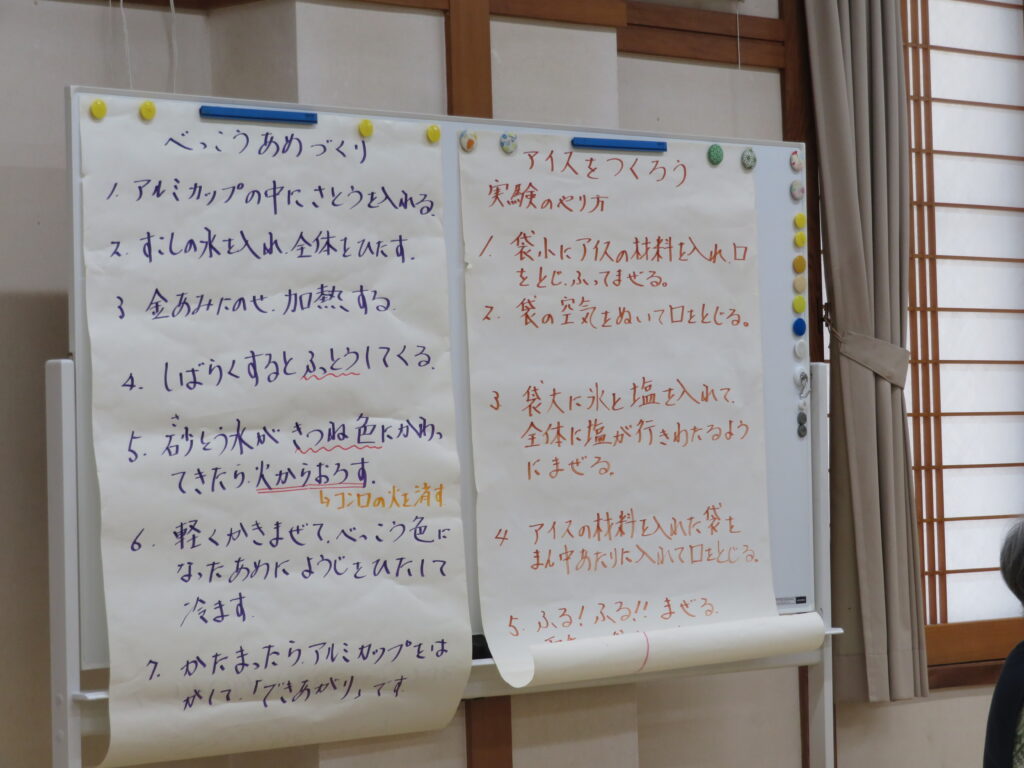 べっこうあめづくり
1. アルミカップの中にさとうを入れる.
2. すこしの水を入れ.全体をひたす.
3 金あみにのせ.加熱する.
4. しばらくするとふっとうしてくる.
さ
5. 砂とう水がきつね色にかわっ
てきたら.火からおろす.
↳コンロの火を消す
6. 軽くかきまぜて.べっこう色に
なったあめにようじをひたして
冷ます.
7. かたまったら.アルミカップをは
がして.「できあがり」です
アイスをつくろう
実験のやり方
1. 袋小にアイスの材料を入れ.口
をとじ.ふってまぜる。
2. 袋の空気をぬいて口をとじる。
3 袋大に氷と塩を入れて.
全体に塩が行きわたるよう
にまぜる。
4 アイスの材料を入れた袋を
まん中あたりに入れて口をとじる。
5. ふる!ふる!!まぜる.